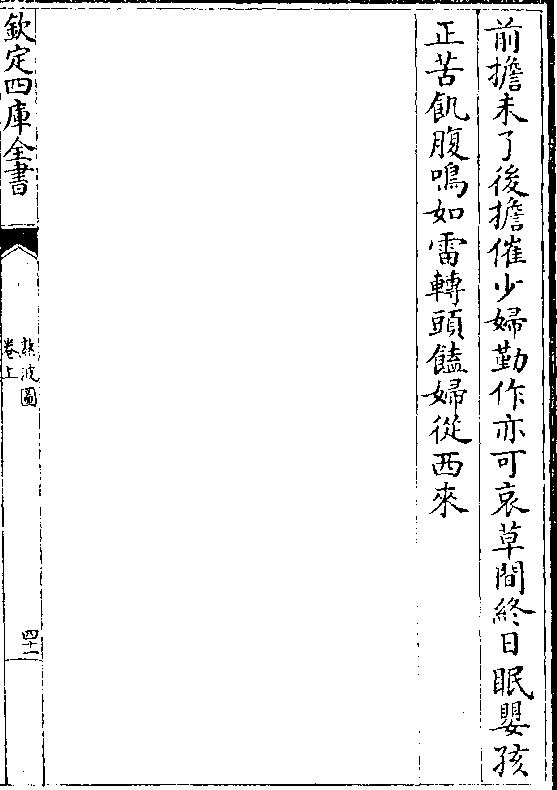 前擔未了後擔催少婦勤作亦可哀草間終日眠嬰孩
正苦飢腹鳴如雷轉頭饁婦從西來
欽定四庫全書
熬波圖
卷上
四十一